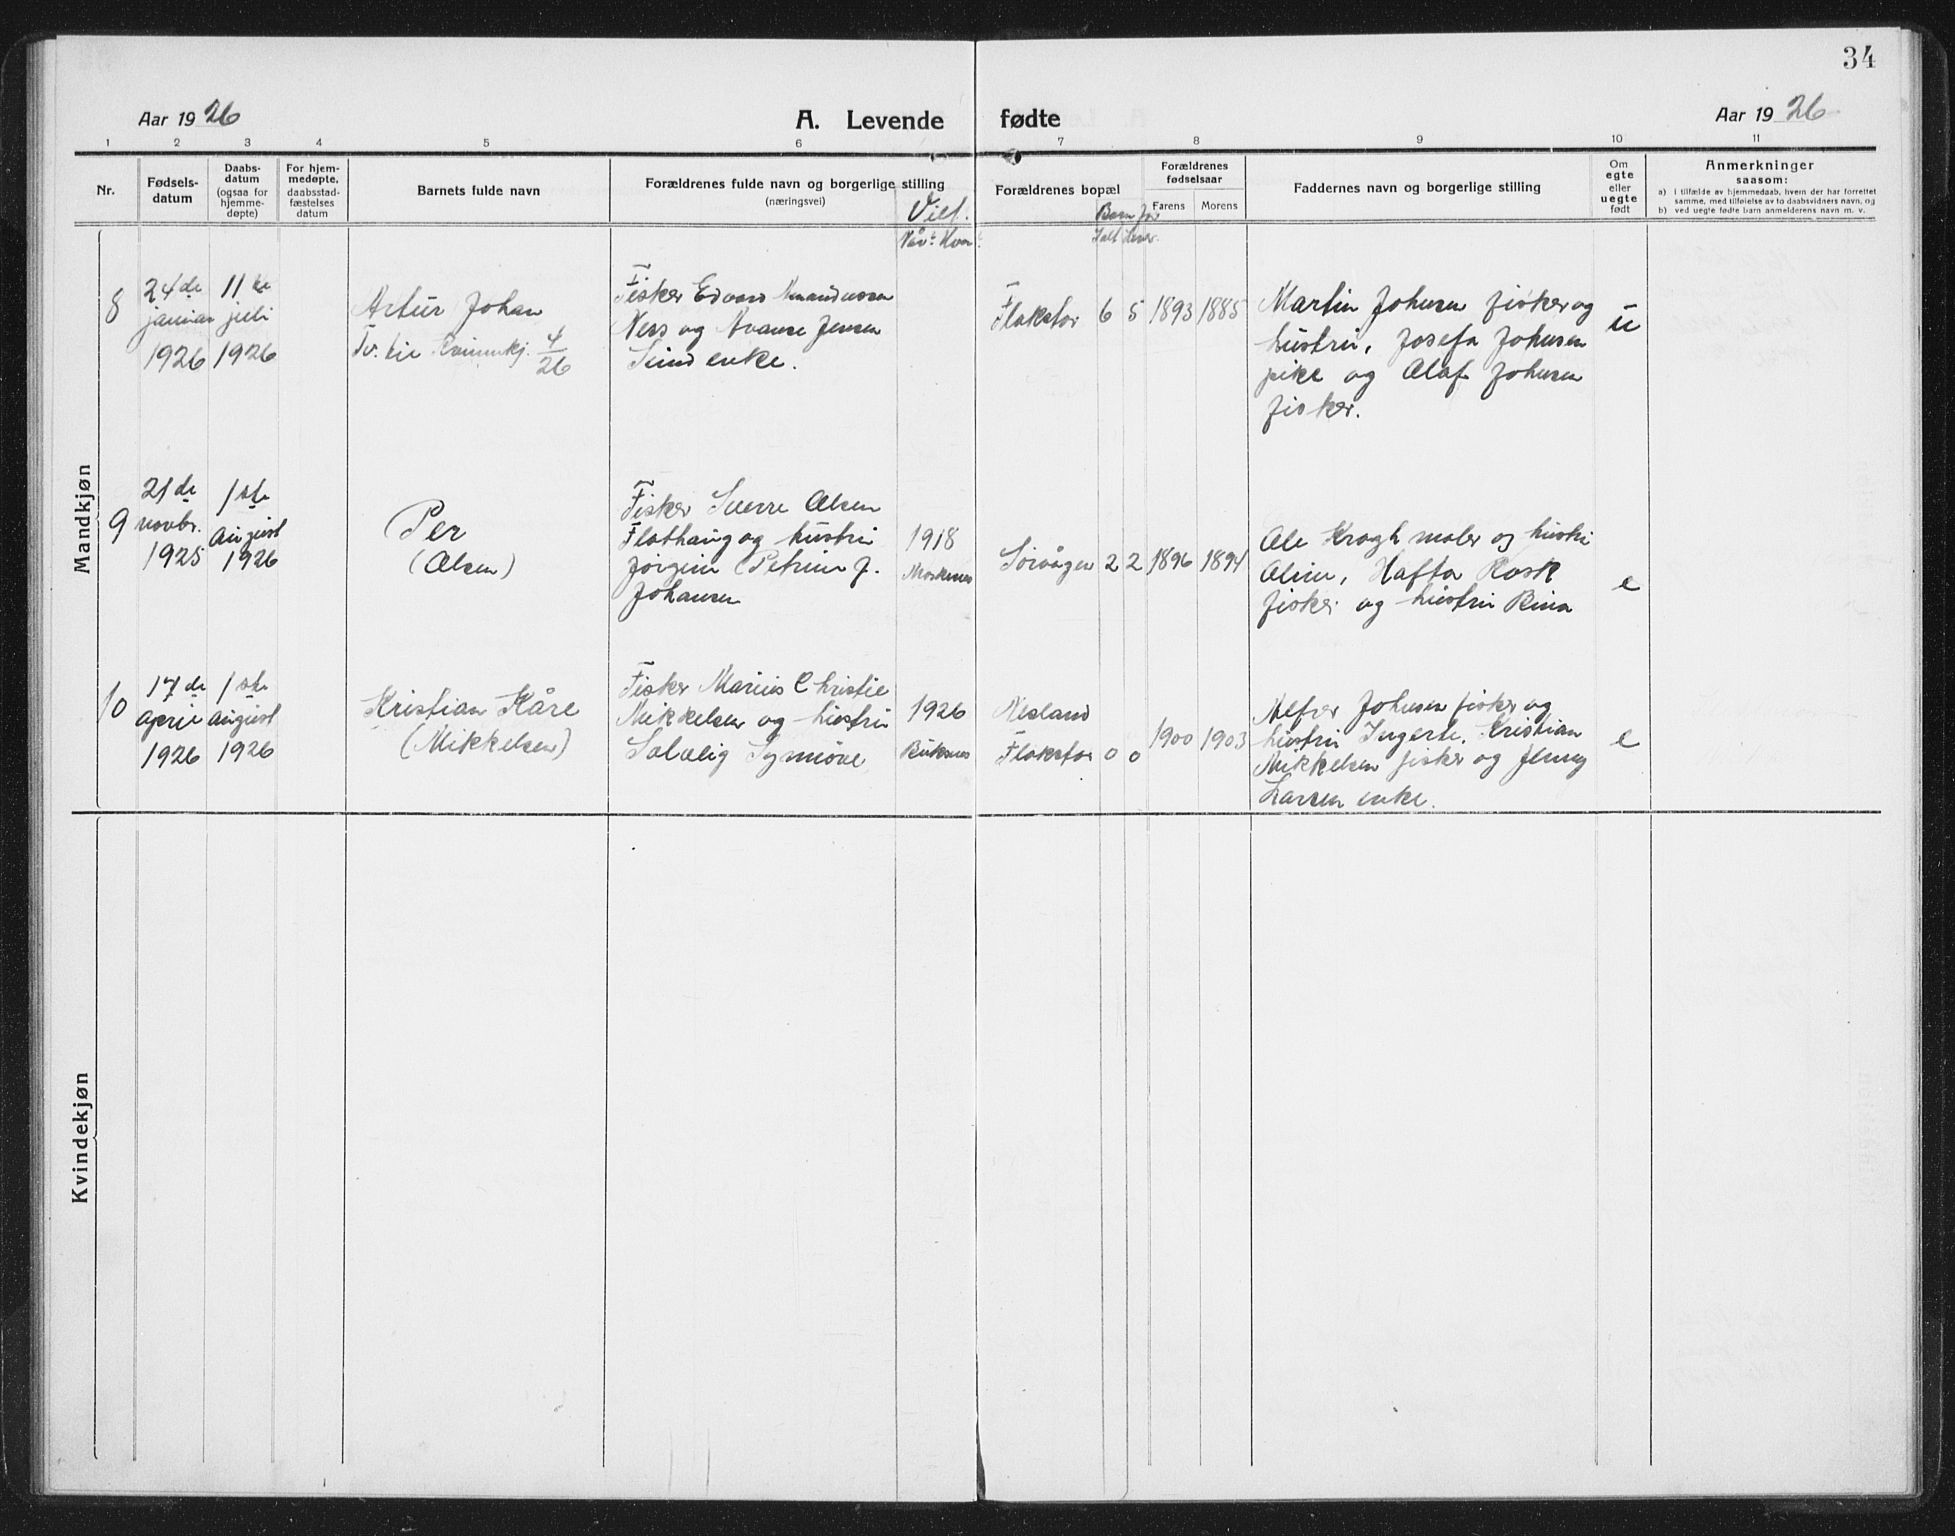 34
Aar 1926
A. Levende fødte
Aar 1926
1 2 3 4 5 6 7 8 9 10 11
Nr.
Fødsels-
datum
Daabs-
datum
(ogsaa for
hjemme-
døpte)
For hjem-
medøpte,
daabsstad-
fæstelses
datum
Barnets fulde navn
Forældrenes fulde navn og borgerlige stilling
(næringsvei)
Viet.
Når: Hvor:
Forældrenes bopæl
Barn før
Ialt
Forældrenes
fødselsaar
Farens Morens
Faddernes navn og borgerlige stilling
Om
egte
eller
uegte
født
Anmerkninger
saasom:
a) i tilfælde av hjemmedaab, hvem der har forrettet
samme, med tilføielse av to daabsvidners navn, og
b) ved uegte fødte barn anmelderens navn m. v.
Mandkjøn
8
24de
januar
1926
11te
juli
1926
Artur Johan
4/26
Fisker Edvard
Ness og Jensen
Sund enke.
Flakstad
6 5
1893 1885
Martin Johnsen fisker og
hustru, Josefa Johnsen
pike og Olaf Johnsen
fisker.
u
9
21de
novbr.
1925
1ste
august
1926
Per
(Olsen)
Fisker Sverre Olsen
Flathaug og hustru
Jörgine Petrine J.
Johansen
1918
Moskenes
Sörvågen
2 2
1896 1894
Ole Krogh maler og hustru
Oline, Rosk
fisker og hustru Rina
e
10
17de
april
1926
1ste
august
1926
Kristian Kåre
(Mikkelsen)
Fisker Marius Christie
Mikkelsen og hustru
Solveig Synnöve
1926
Buksnes
Nesland
Flakstad
0 0
1900 1903
Alfred Johnsen fisker og
hustru Kristian
Mikkelsen fisker og Jenny
Larsen enke.
e
Kvindekjøn